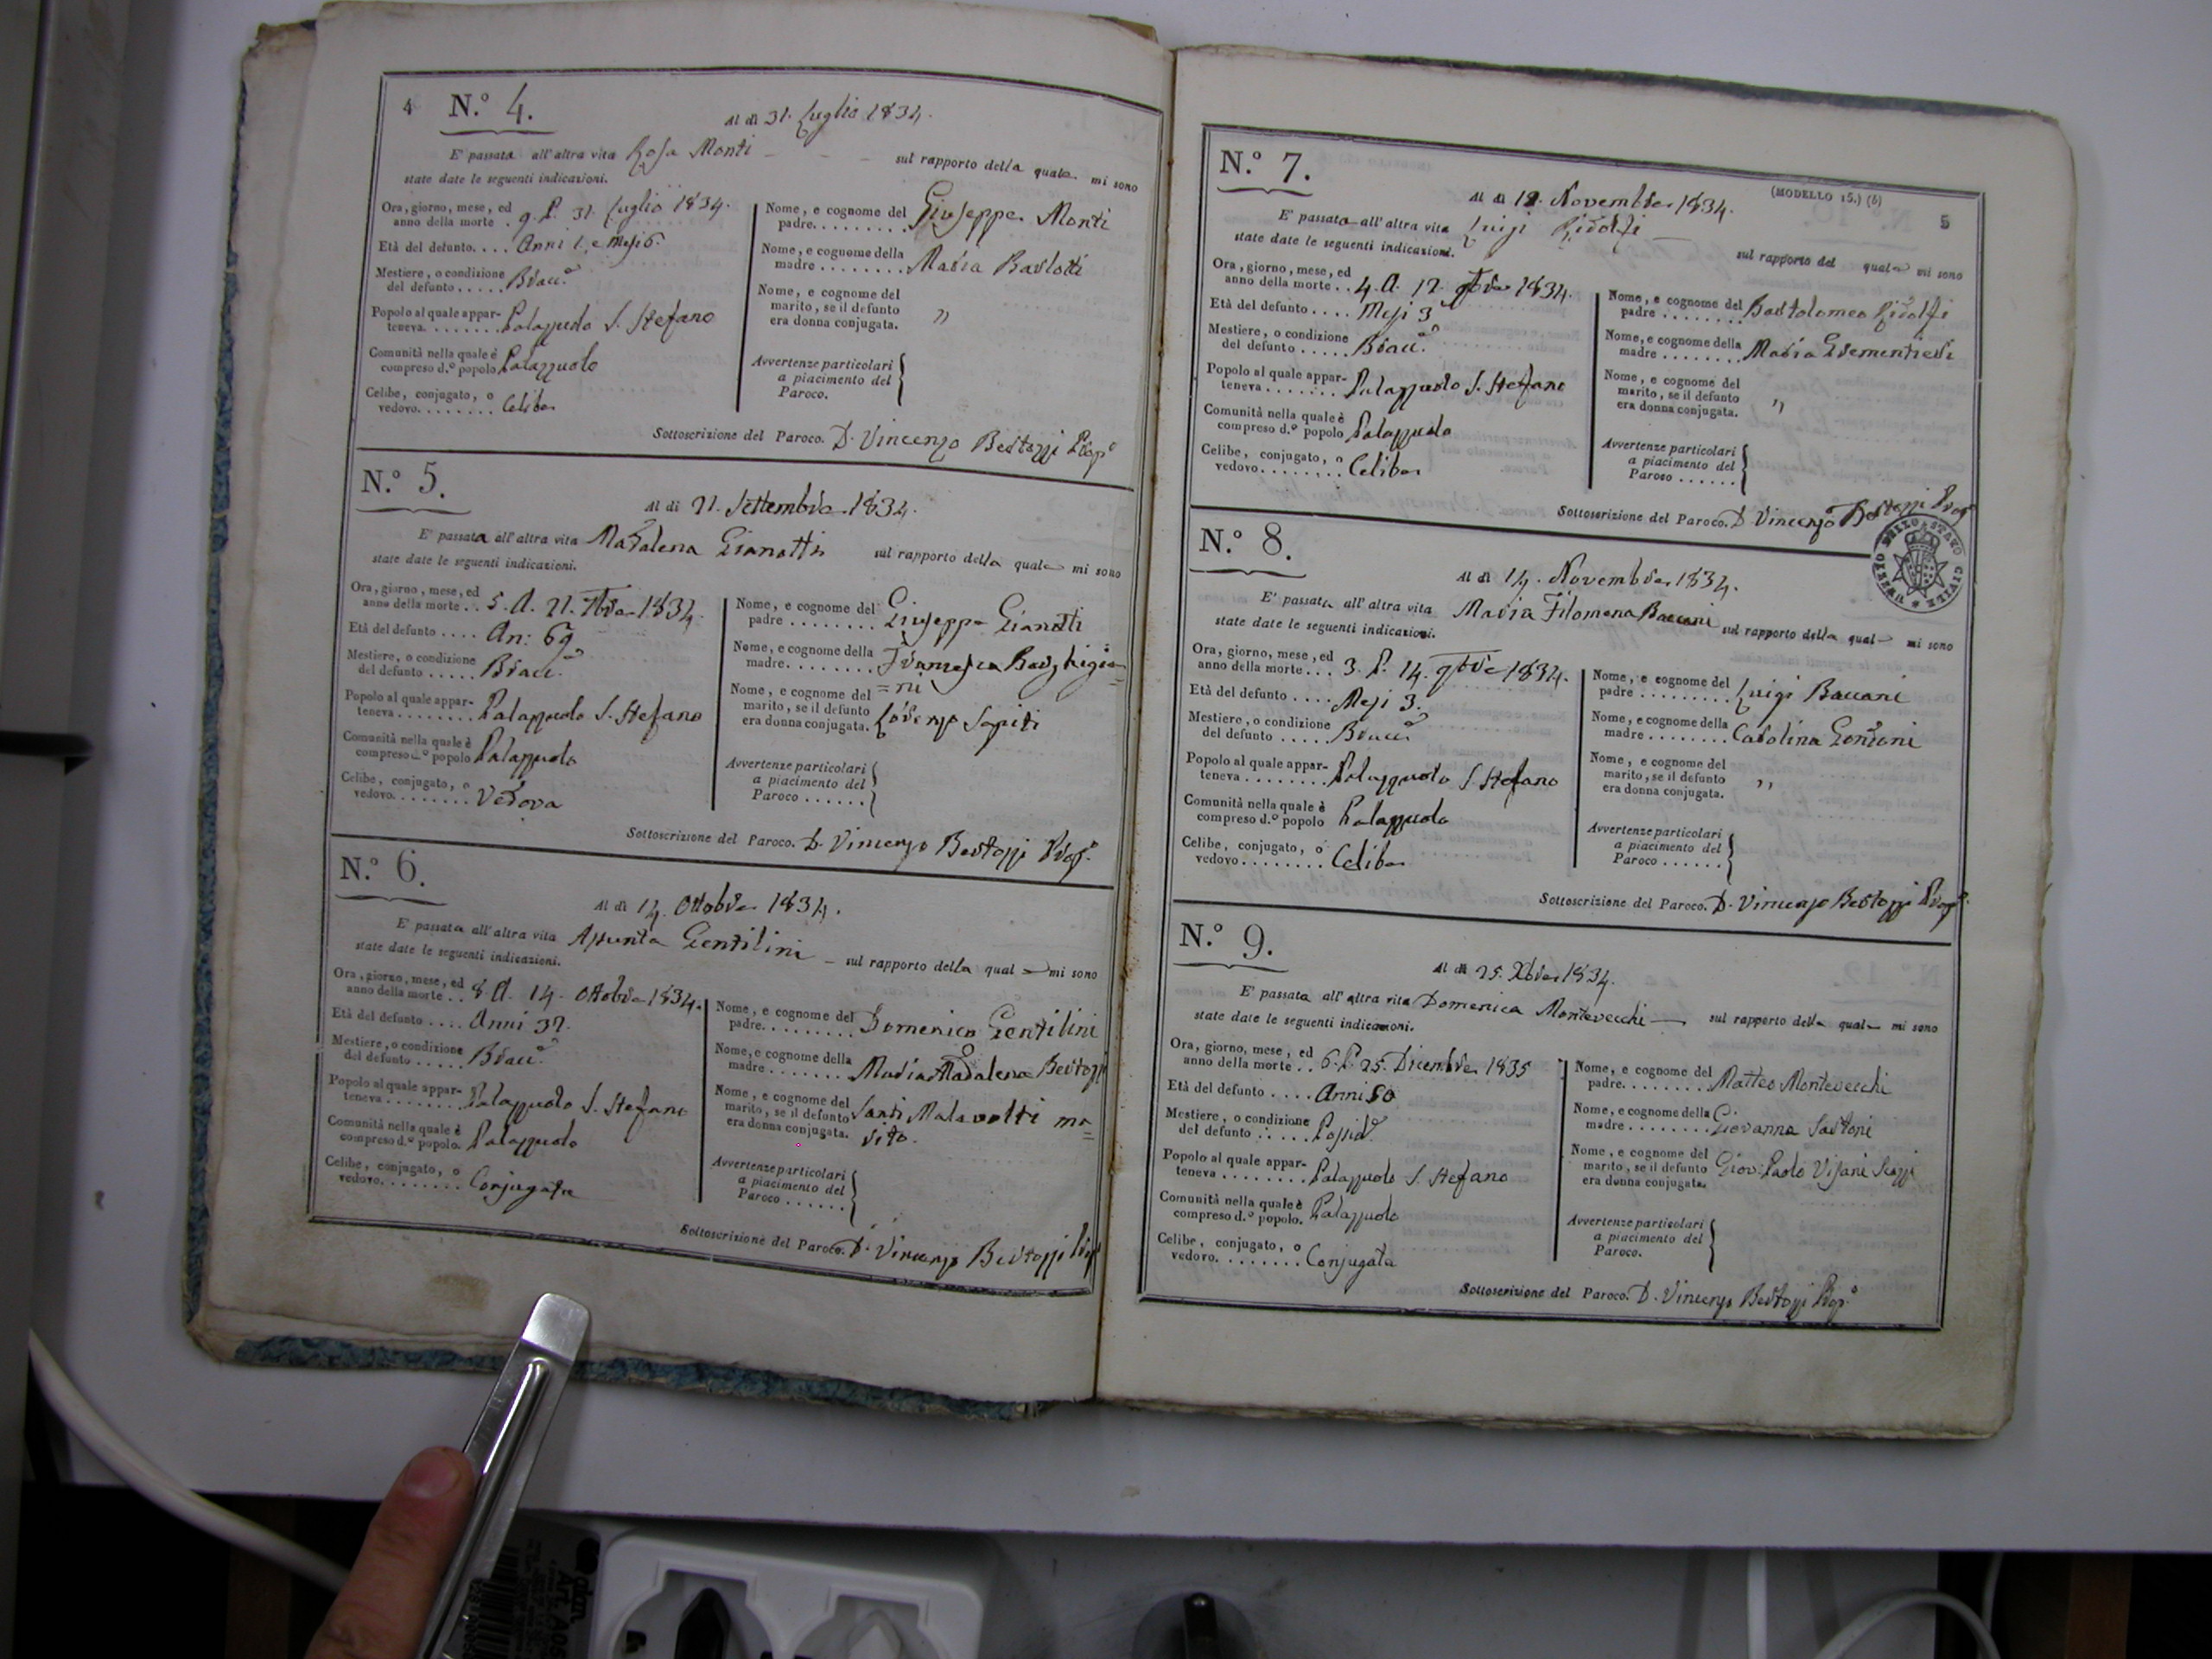 4
N.º 4.
Al dì 31. Luglio 1834.
E' passata all'altra vita Rosa Monti sul rapporto della quale mi sono
state date le seguenti indicazioni.
Ora, giorno, mese, ed
anno della morte . 9. P. 31. Luglio 1834.
Età del defunto. . . . Anni 1. e Mesi 6.
Mestiere, o condizione
del defunto . . . . . Bracc.e
Popolo al quale appar-
teneva. . . . . . . . Palazzuolo S. Stefano
Comunità nella quale è
compreso d.º popolo Palazzuolo
Celibe, conjugato, o
vedovo. . . . . . . . Celibe
Nome, e cognome del
padre. . . . . . . . . Giuseppe Monti
Nome, e cognome della
madre . . . . . . . . Maria Barlotti
Nome, e cognome del
marito, se il defunto
era donna conjugata. "
Avvertenze particolari
a piacimento del
Paroco.
Sottoscrizione del Paroco. D. Vincenzo Bertozzi Prop.º
N.º 5.
Al dì 21. Settembre 1834.
E' passata all'altra vita Madalena Gianotti sul rapporto della quale mi sono
state date le seguenti indicazioni.
Ora, giorno, mese, ed
anno della morte . . 5. A. 21. 7bre 1834.
Età del defunto . . . . An: 69
Mestiere, o condizione
del defunto . . . . . Bracc.e
Popolo al quale appar-
teneva . . . . . . . . Palazzuolo S. Stefano
Comunità nella quale è
compreso d.º popolo Palazzuolo
Celibe, conjugato, o
vedovo. . . . . . . . Vedova
Nome, e cognome del
padre . . . . . . . . Giuseppe Gianotti
Nome, e cognome della
madre. . . . . . . . Francesca Borghigia=
Nome, e cognome del =ni
marito, se il defunto
era donna conjugata. Lorenzo Sapiti
Avvertenze particolari
a piacimento del
Paroco . . . . . .
Sottoscrizione del Paroco. D. Vincenzo Bertozzi Prop.º
N.º 6.
Al dì 14. Ottobre 1834.
E' passata all'altra vita Assunta Gentilini sul rapporto della quale mi sono
state date le seguenti indicazioni.
Ora, giorno, mese, ed
anno della morte . . 8. A. 14. Ottobre 1834.
Età del defunto . . . . Anni 37.
Mestiere, o condizione
del defunto . . . . . Bracc.e
Popolo al quale appar-
teneva . . . . . . . . Palazzuolo S. Stefano
Comunità nella quale è
compreso d.º popolo. Palazzuolo
Celibe, conjugato, o
vedovo. . . . . . . . Conjugata
Nome, e cognome del
padre. . . . . . . . . Domenico Gentilini
Nome, e cognome della
madre . . . . . . . Maria Madalena Bertozzi
Nome, e cognome del
marito, se il defunto Santi Malavolti ma=
era donna conjugata. rito.
Avvertenze particolari
a piacimento del
Paroco . . . . . .
Sottoscrizione del Paroco. D. Vincenzo Bertozzi Prop.º
(MODELLO 15.) (b)
5
N.º 7.
Al dì 12. Novembre 1834.
E' passato all'altra vita Luigi Ridolfi sul rapporto del quale mi sono
state date le seguenti indicazioni.
Ora, giorno, mese, ed
anno della morte . . 4. A. 12. 9bre 1834.
Età del defunto . . . . Mesi 3
Mestiere, o condizione
del defunto . . . . . Bracc.e
Popolo al quale appar-
teneva . . . . . . . Palazzuolo S. Stefano
Comunità nella quale è
compreso d.º popolo Palazzuolo
Celibe, conjugato, o
vedovo. . . . . . . . Celibe
Nome, e cognome del
padre . . . . . . . . Bartolomeo Ridolfi
Nome, e cognome della
madre . . . . . . . . Maria Grementieri
Nome, e cognome del
marito, se il defunto
era donna conjugata. "
Avvertenze particolari
a piacimento del
Paroco . . . . . .
Sottoscrizione del Paroco. D. Vincenzo Bertozzi Prop.º
ARCHIVIO DELLO STATO CIVILE
N.º 8.
Al dì 14. Novembre 1834.
E' passata all'altra vita Maria Filomena Baccani sul rapporto della quale mi sono
state date le seguenti indicazioni.
Ora, giorno, mese, ed
anno della morte . . . 3. P. 14. 9bre 1834.
Età del defunto . . . . Mesi 3.
Mestiere, o condizione
del defunto . . . . . Bracc.e
Popolo al quale appar-
teneva . . . . . . . . Palazzuolo S. Stefano
Comunità nella quale è
compreso d.º popolo Palazzuolo
Celibe, conjugato, o
vedovo. . . . . . . . Celibe
Nome, e cognome del
padre . . . . . . . . . Luigi Baccani
Nome, e cognome della
madre . . . . . . . . Carolina Gordoni
Nome, e cognome del
marito, se il defunto
era donna conjugata. "
Avvertenze particolari
a piacimento del
Paroco . . . . . .
Sottoscrizione del Paroco. D. Vincenzo Bertozzi Prop.º
N.º 9.
Al dì 25. Xbre 1834.
E' passata all'altra vita Domenica Montevecchi sul rapporto della quale mi sono
state date le seguenti indicazioni.
Ora, giorno, mese, ed
anno della morte . . 6. P. 25. Dicembre 1835
Età del defunto . . . . Anni 50
Mestiere, o condizione
del defunto . . . . . Possid.e
Popolo al quale appar-
teneva . . . . . . . . Palazzuolo S. Stefano
Comunità nella quale è
compreso d.º popolo. Palazzuolo
Celibe, conjugato, o
vedovo. . . . . . . . Conjugata
Nome, e cognome del
padre. . . . . . . . Matteo Montevecchi
Nome, e cognome della
madre . . . . . . . . Giovanna Sartoni
Nome, e cognome del
marito, se il defunto Giov: Paolo Visani Scozzi
era donna conjugata.
Avvertenze particolari
a piacimento del
Paroco.
Sottoscrizione del Paroco. D. Vincenzo Bertozzi Prop.º